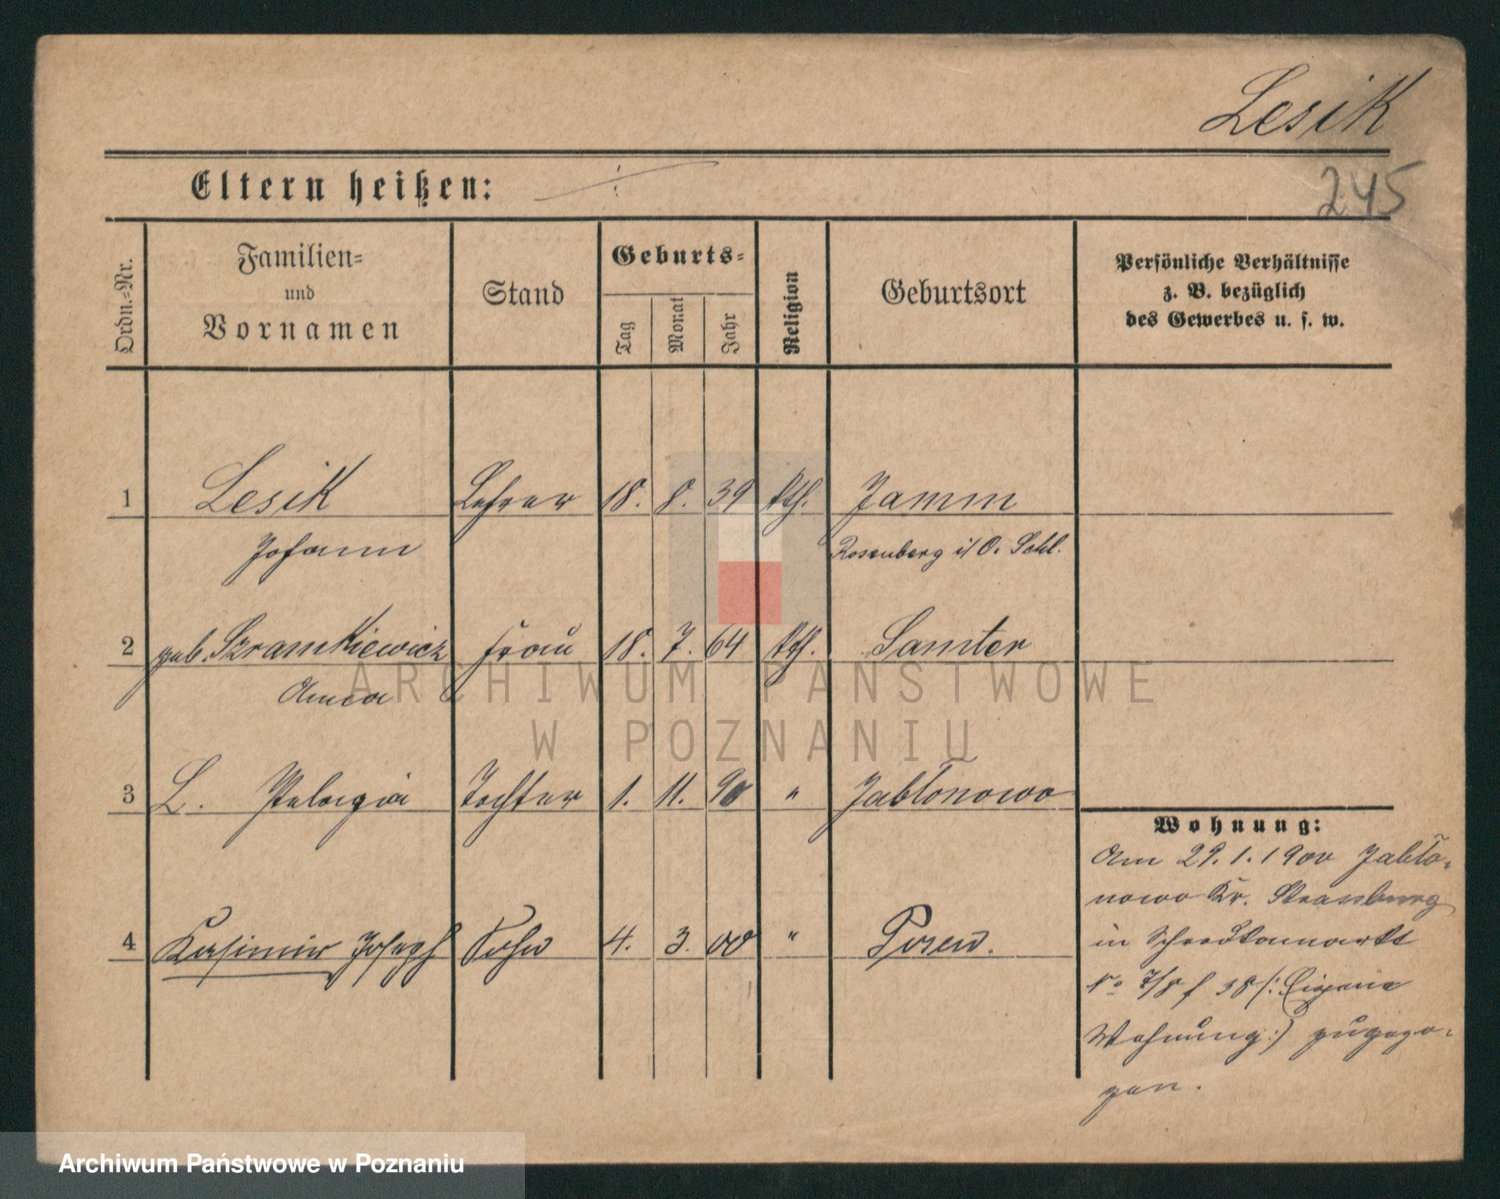 Lesik
245
Eltern heißen: ÷
Ordn.-Nr.
Familien-
und
Vornamen
Stand
Geburts-
Tag
Monat
Jahr
Religion
Geburtsort
Persönliche Verhältnisse
z. B. bezüglich
des Gewerbes u. s. w.
1 Lesik Lehrer 18. 8. 39 kth. Jamm
Johann Rosenberg i/O. Schl.
2 geb. Szramkiewicz Frau 18. 7. 64 kth. Samter
3 L. Pelagia Tochter 1. 11. 90 " Jabłonowo
4 Kasimir Joseph Sohn 4. 3. 00 " Posen.
Wohnung:
Am 29.1.1900 Jabło-
nowo Kr. Strassburg
in
No 7/8 (: Eigene
Wohnung:) zugezo-
gen.
ARCHIWUM PAŃSTWOWE
W POZNANIU
Archiwum Państwowe w Poznaniu